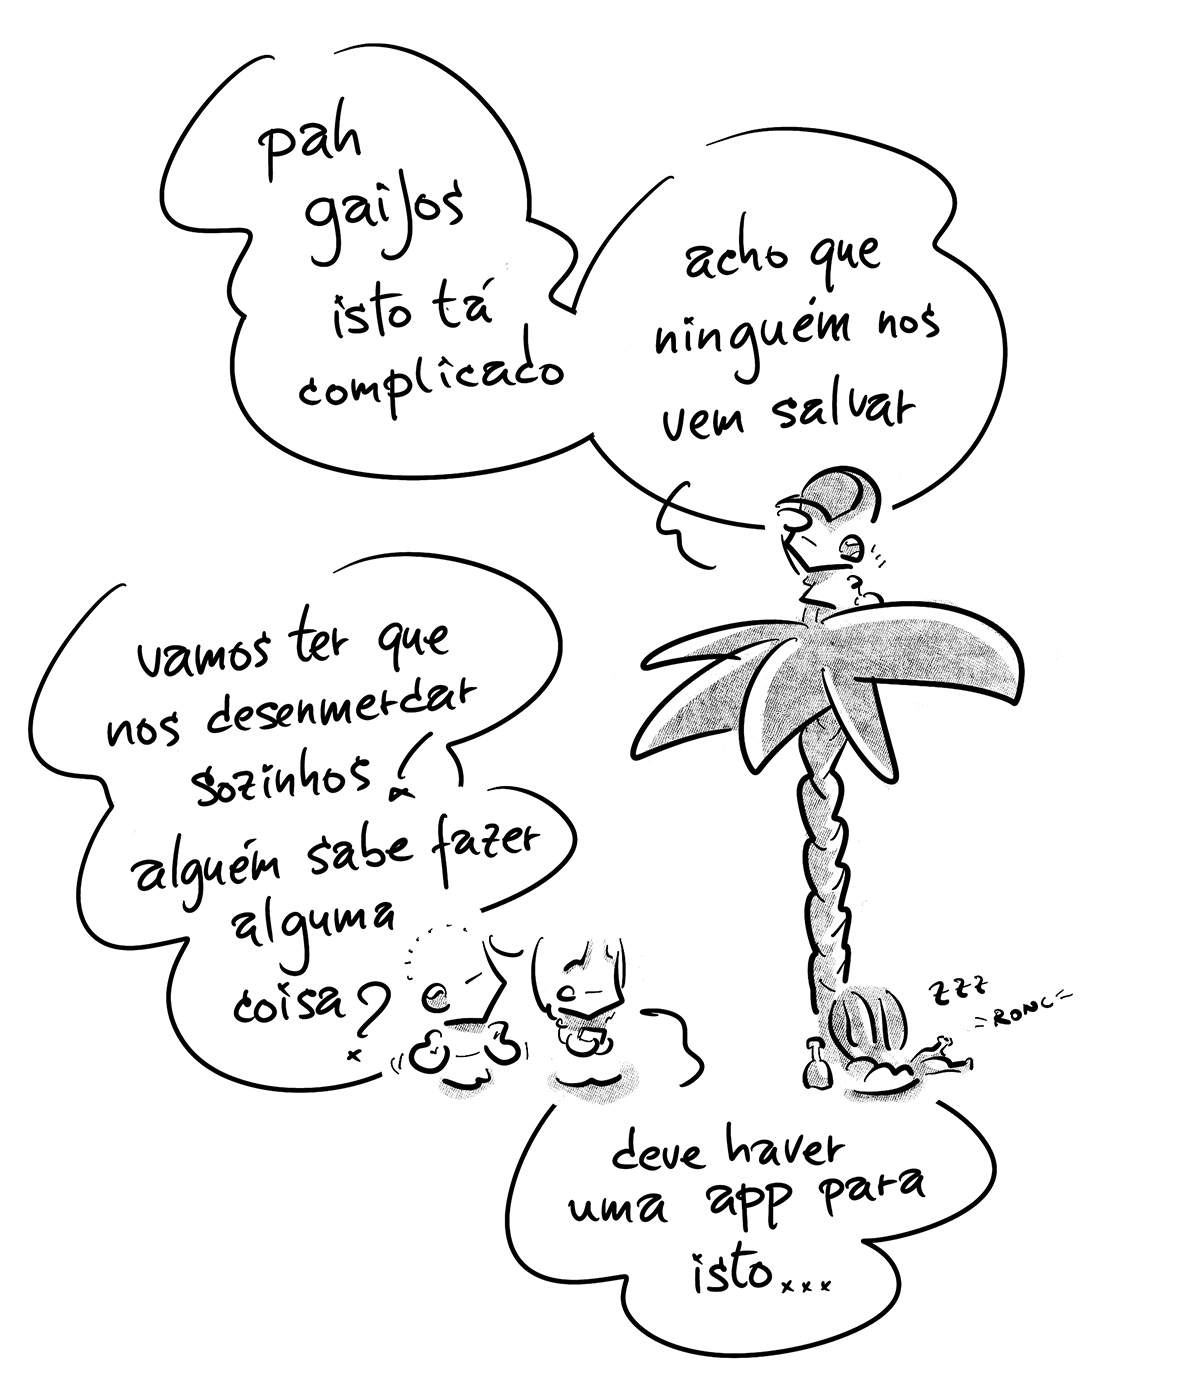 pah
gaijos
isto tá
complicado
acho que
ninguém nos
vem salvar
vamos ter que
nos desenmerdar
sozinhos!
alguém sabe fazer
alguma
coisa?
zzz
=RONC=
deve haver
uma app para
isto...